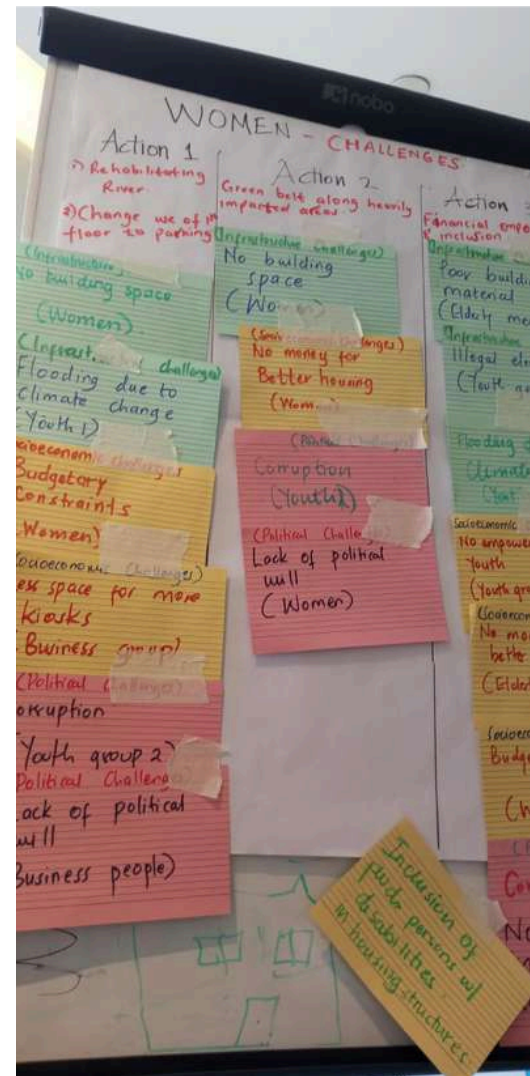 nobo
WOMEN - CHALLENGES
Action 1
1) Rehabilitating
River.
2) Change use of
floor to parking
(Infrastructure
No building space
(Women)
(Infrast. challenges)
Flooding due to
climate change
(Youth 1)
Socioeconomic challenges
Budgetary
Constraints
Women)
Socioeconomic Challenges)
ess space for more
kiosks
Business group)
(Political Challenges)
orruption
Youth group 2)
Political Challenge
ack of political
will
Business people)
Action 2
Green belt along heavily
impacted areas.
(Infrastructure challenges)
No building
space
(Women)
No money for
Better housing
(Wom
(Political Challenges)
Corruption
(Youth 2)
(Political Challe
Lack of political
will
(Women)
Action
Financial empo
& inclusion
Infrastructure
Poor buildi
material
(Elderly me
Infrastructure
Illegal ele
(Youth
Flooding
Climate
Socioeconomic
No empower
Youth
(Youth gro
(Socioecon
No mon
bette
(Elder
Socioeco
Budge
Co
No
Inclusion of
persons w/
disabilities
in housing structures